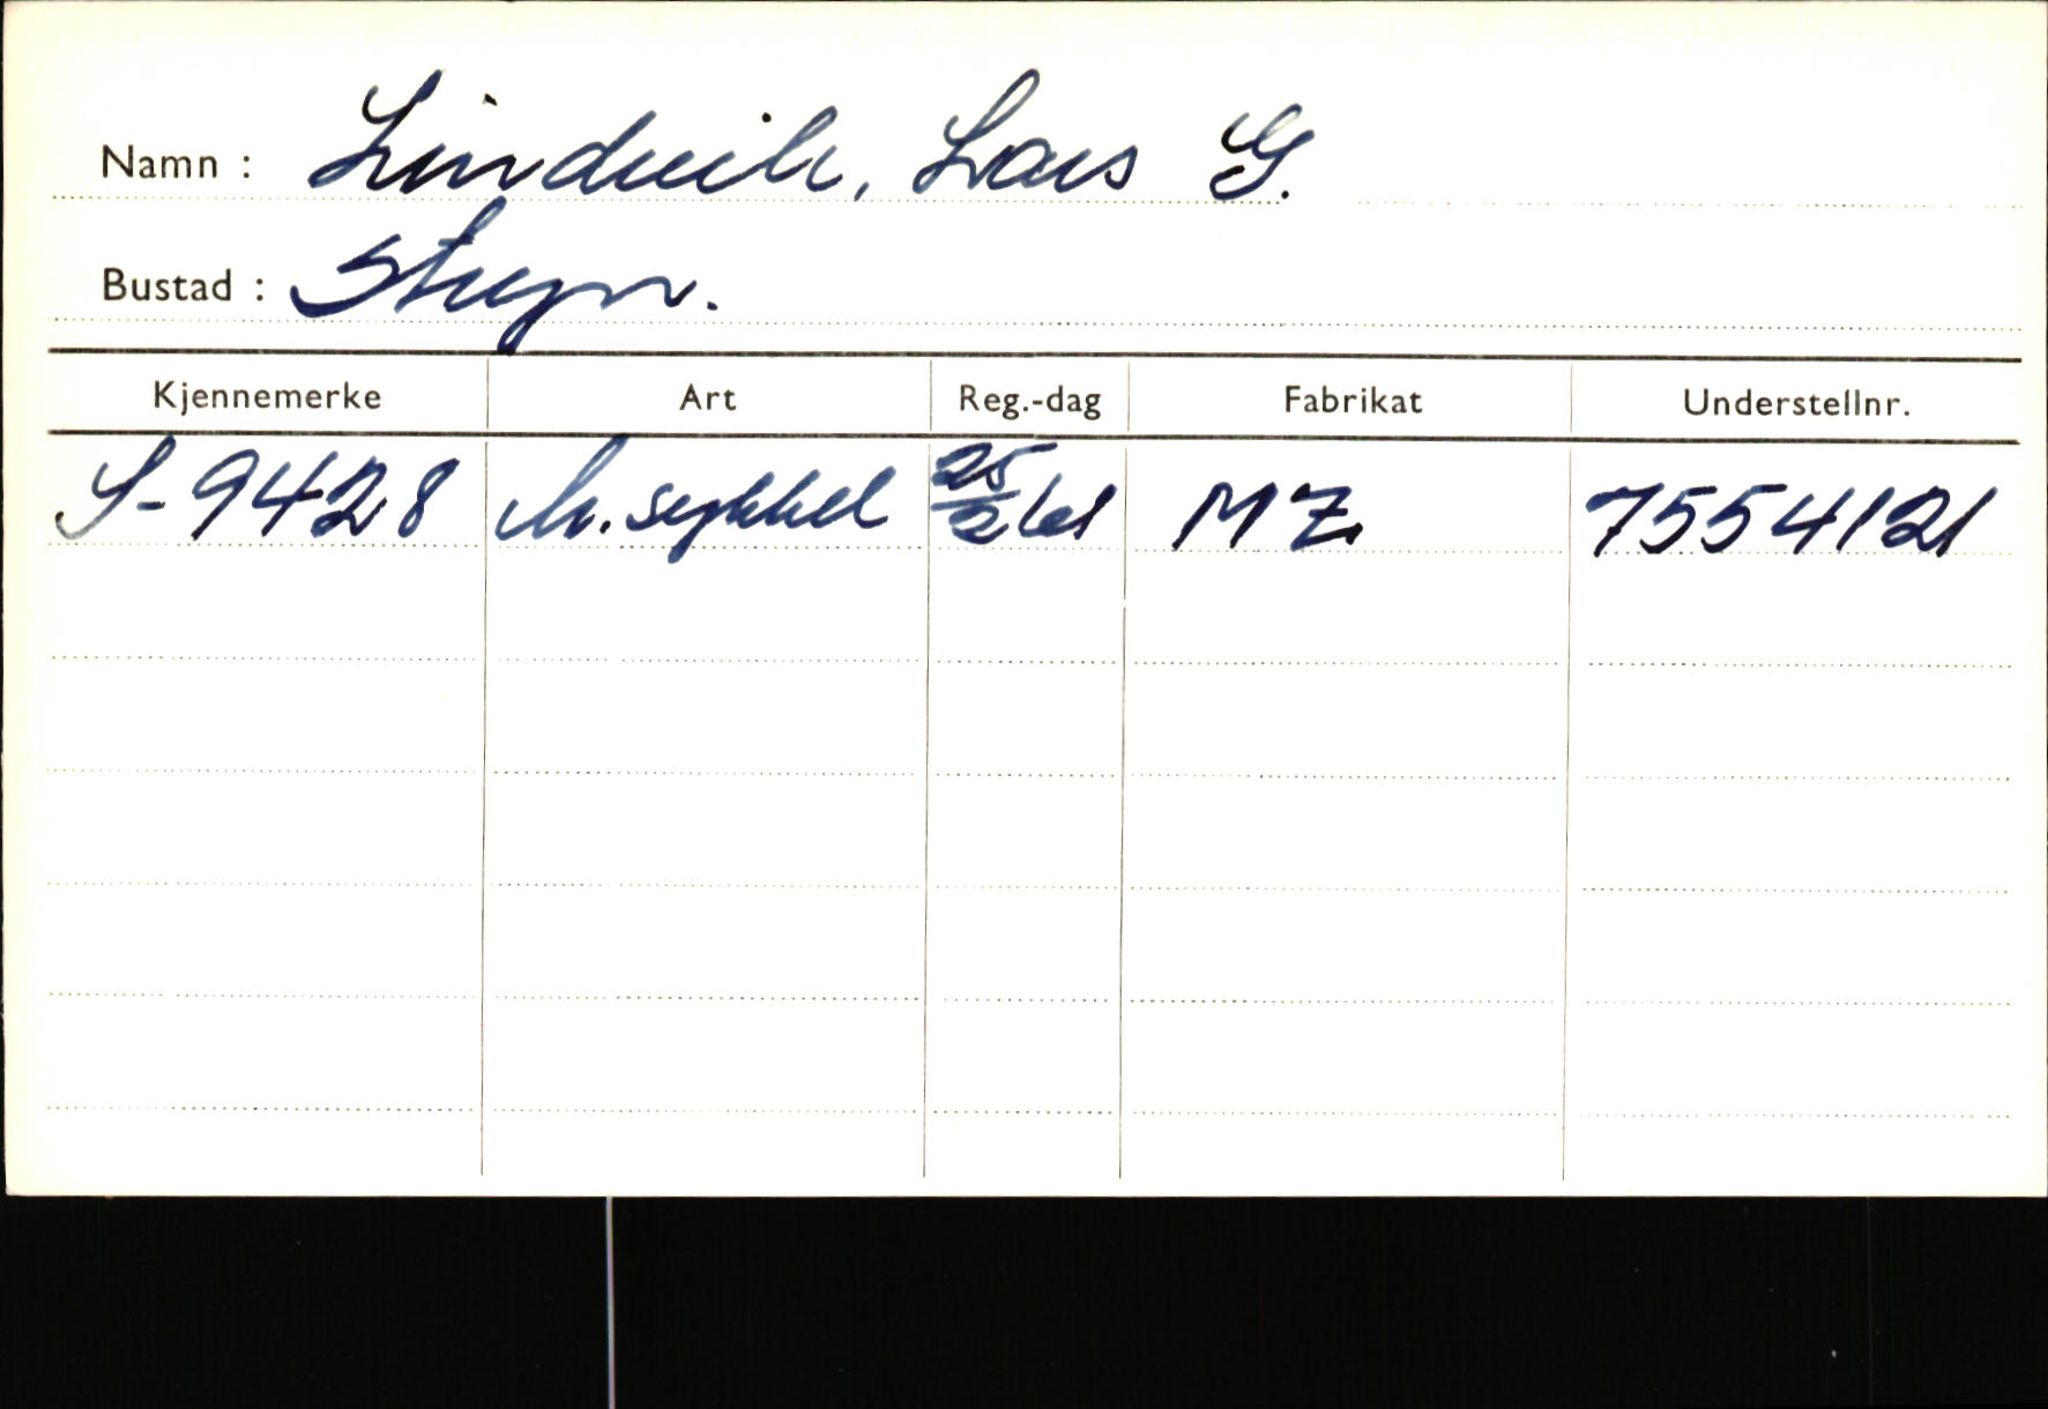 Namn : Lindvik, Lars G.
Bustad : Stryn.
Kjennemerke Art Reg.-dag Fabrikat Understellnr.
S-9428 M. sykkel 25/2 61 MZ 7554121